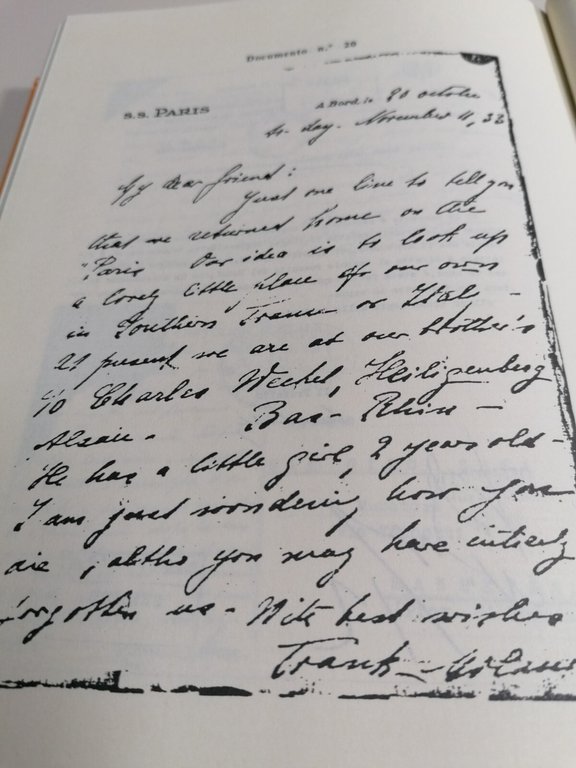 Documento n.º 20
S.S. PARIS
A Bord, le 20 octobre
to day. November 11, 33
My dear friend:
Just one line to tell you
that we returned home on the
"Paris Our idea is to look up
a lovely little place of our own
in Southern France or Italy -
At present we are at our brother's
c/o Charles Wechel, Heiligenberg
Alsace. Bas-Rhin -
He has a little girl, 2 years old -
I am just wondering how you
are, altho you may have entirely
forgotten us - With best wishes
Frank -